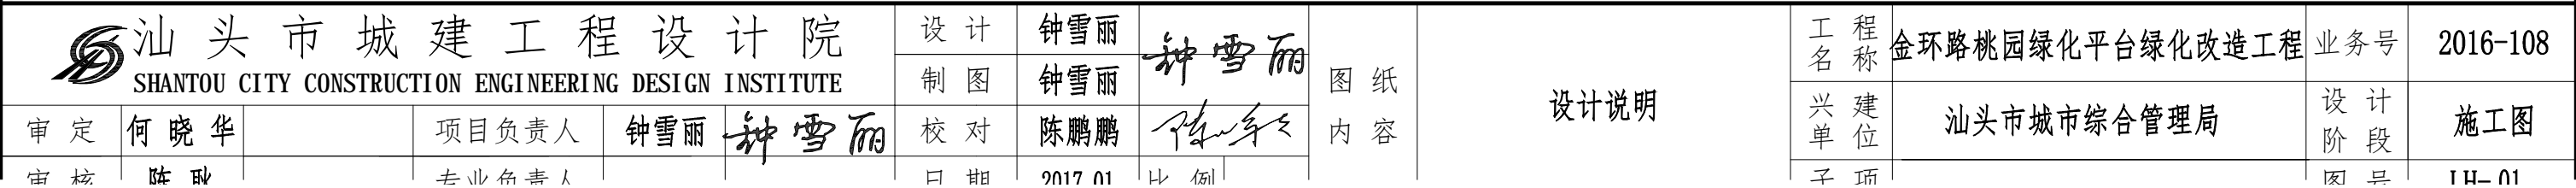 汕头市城建工程设计院
SHANTOU CITY CONSTRUCTION ENGINEERING DESIGN INSTITUTE
审定 何晓华 项目负责人 钟雪丽 钟雪丽
审核 陈耿 专业负责人
设计 钟雪丽 钟雪丽
制图 钟雪丽
校对 陈鹏鹏
日期 2017.01 比例
图纸
内容
设计说明
工程
名称
金环路桃园绿化平台绿化改造工程
业务号 2016-108
兴建
单位
汕头市城市综合管理局
设计
阶段
施工图
子项
图号 LH-01